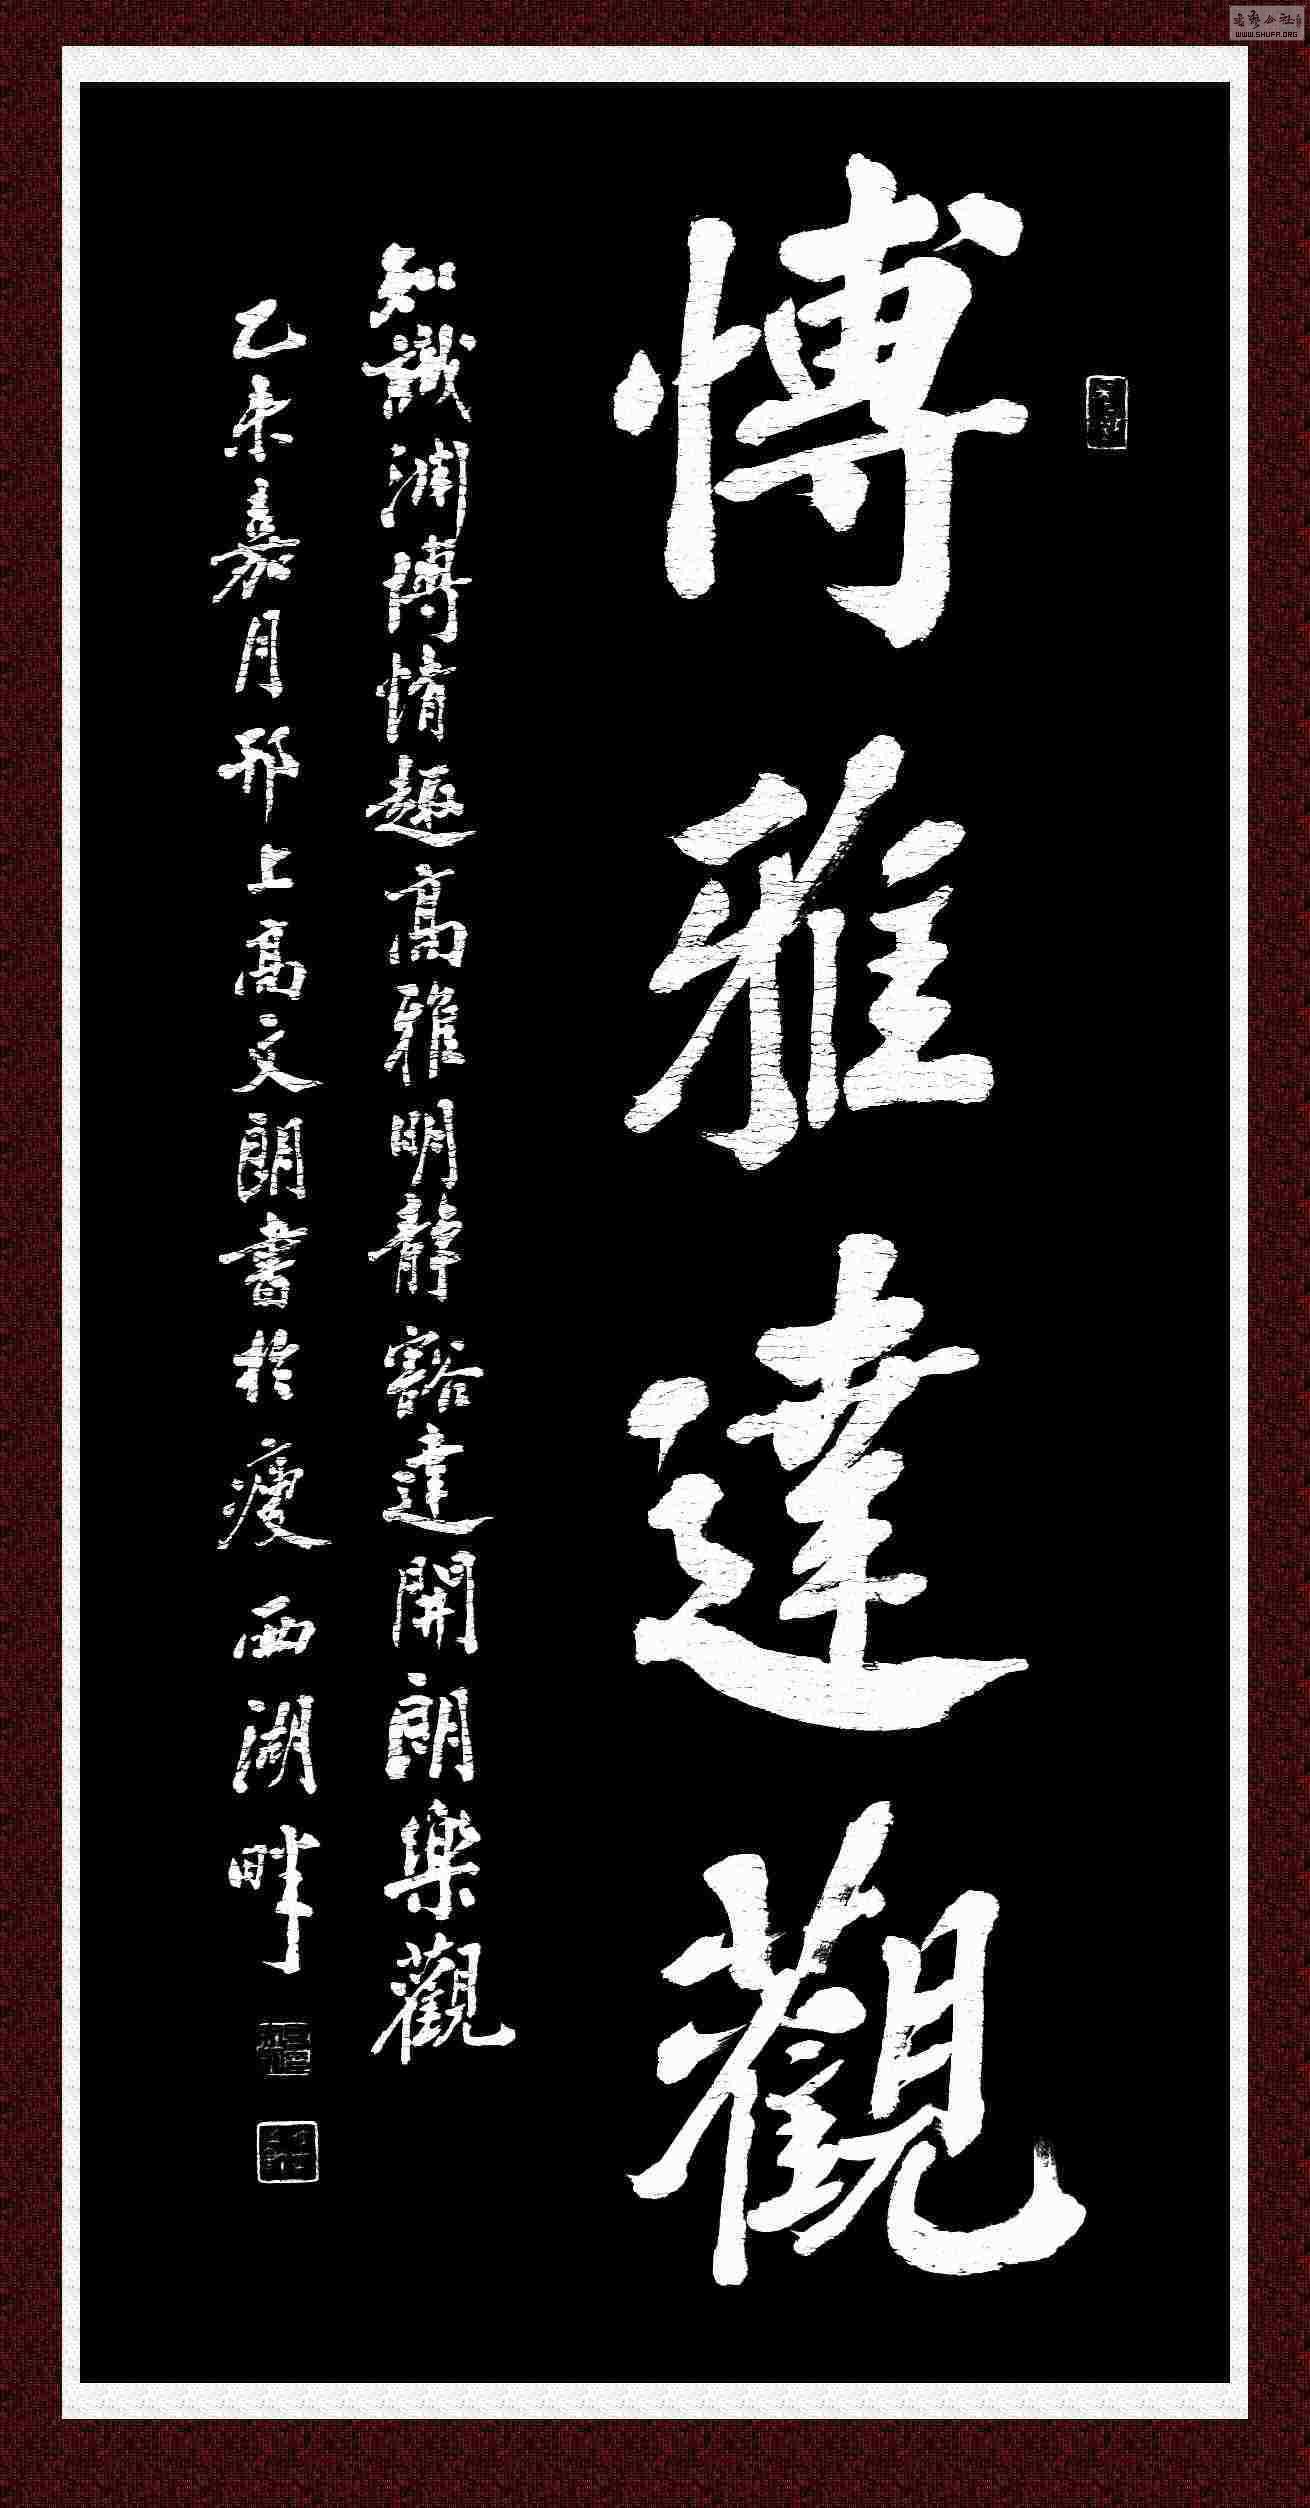 博雅達觀
知識渊博情趣高雅明靜豁達開朗樂觀
乙未嘉月邗上高文朗書於瘦西湖畔
WWW.SHUFA.ORG